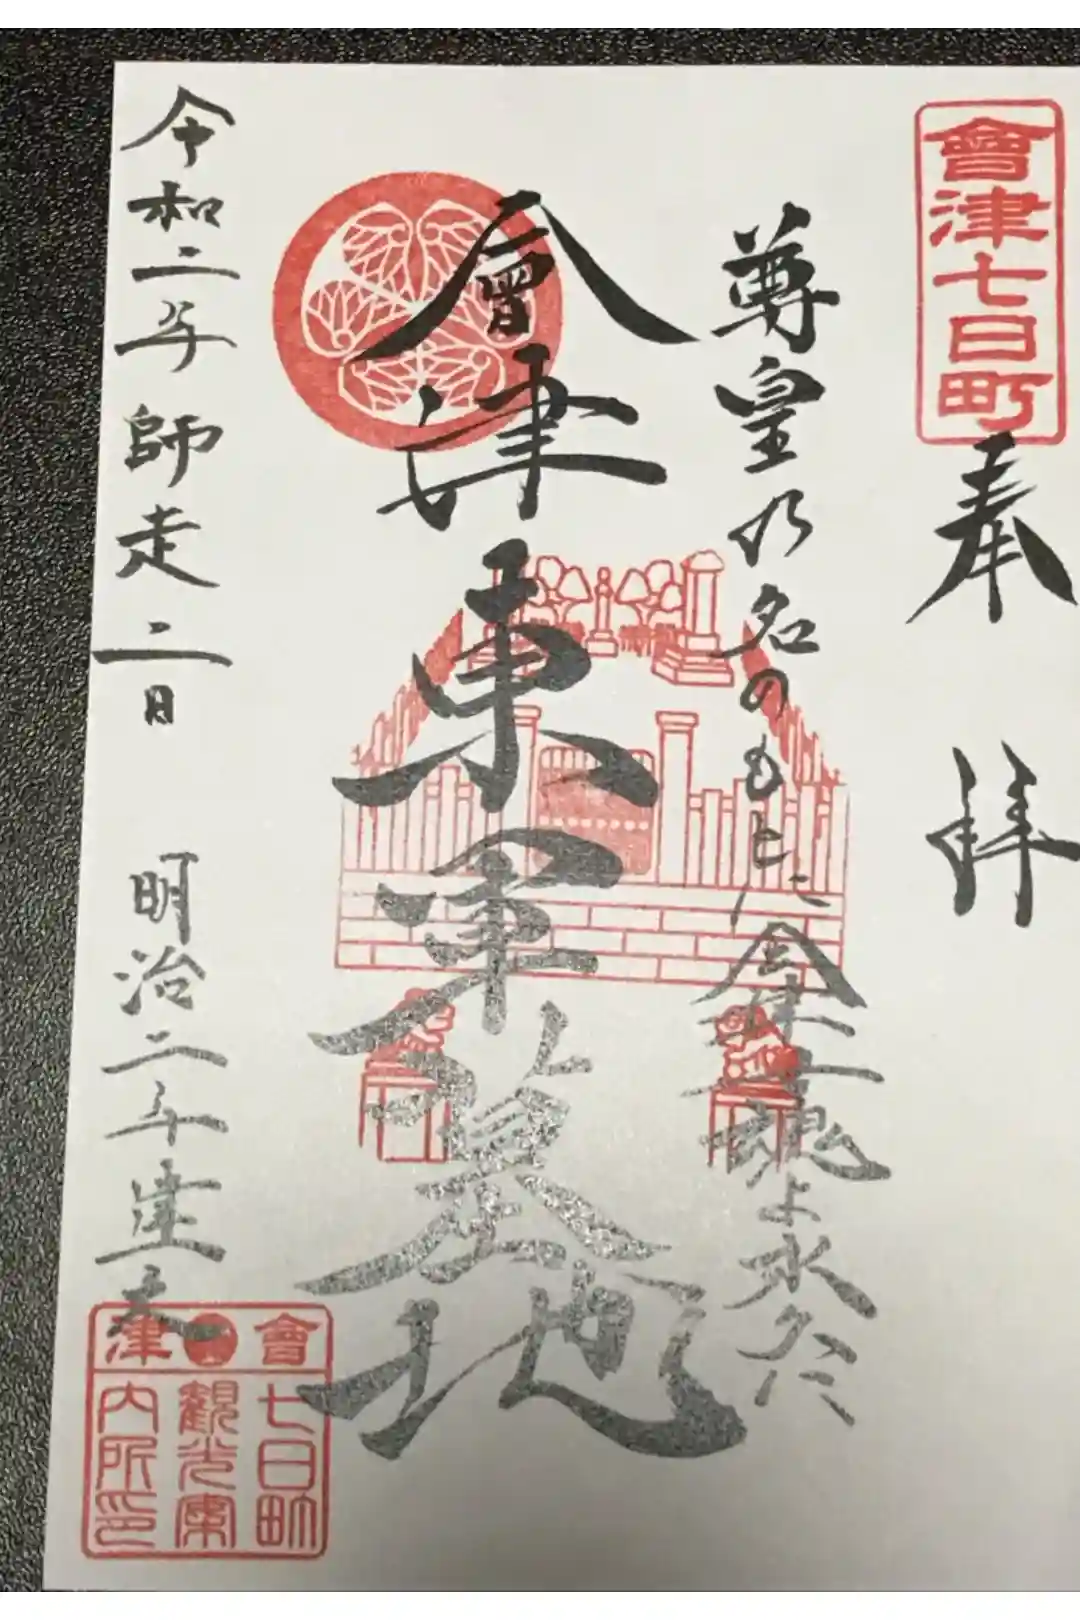 會津七日町
奉拝
尊皇乃名のもとに会津士魂よ永久に
會津東軍墓地
令和二年師走二日 明治二年建立
會津
七日町
観光案
内所印